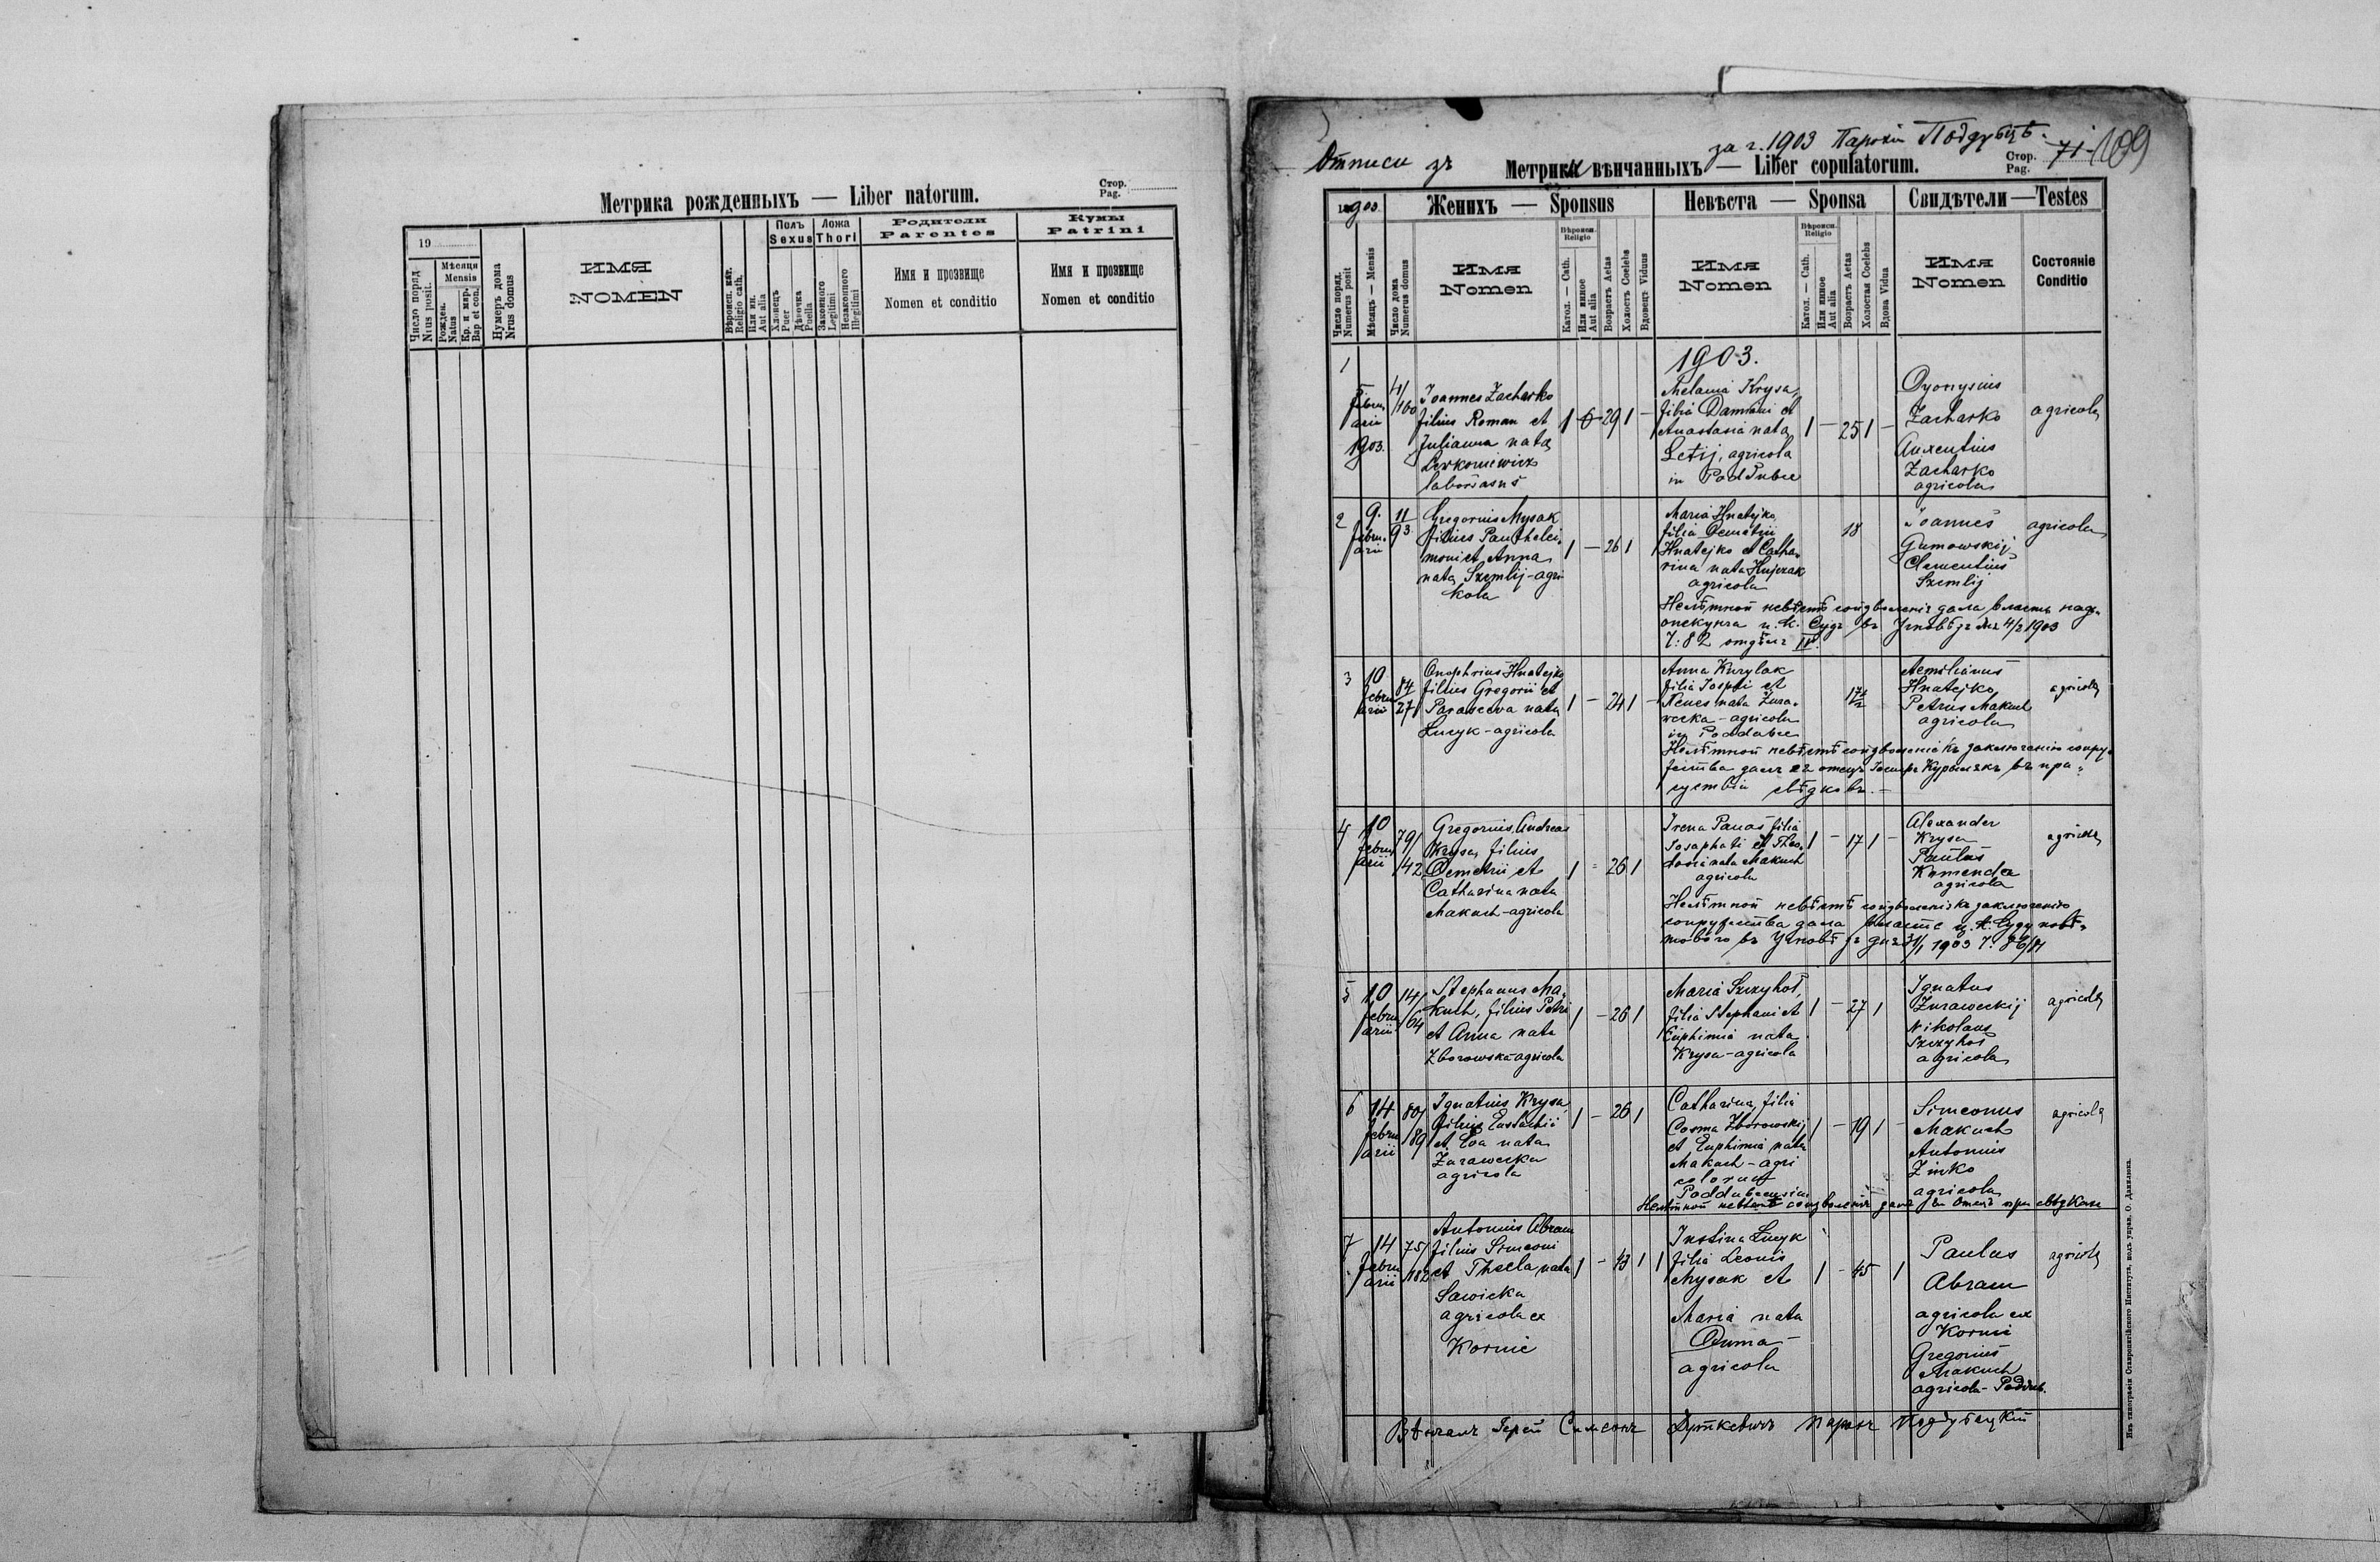 Метрика рожденныхъ — Liber natorum.
Стор.
Pag.
19
Число поряд.
Nrus posit.
Мѣсяця
Mensis
Рожден.
Natus
Кр. и мир.
Bap et con.
Нумеръ дома
Nrus domus
ИМЯ
NOMEN
Вѣроисп. кат.
Religio cath.
Или ин.
Aut alia
Полъ
Sexus
Хлопецъ
Puer
Дѣвочка
Puella
Ложа
Thori
Законного
Legitimi
Незаконного
Illegitimi
Родители
Parentes
Имя и прозвище
Nomen et conditio
Кумы
Patrini
Имя и прозвище
Nomen et conditio
за г. 1903 Парохіи Поддубцѣ.
Отписи зъ Метрики вѣнчанныхъ — Liber copulatorum.
Стор.
Pag.
71
109
1903.
Женихъ — Sponsus
Невѣста — Sponsa
Свидѣтели — Testes
Число поряд.
Numerus posit
Мѣсяцъ — Mensis
Число дома
Numerus domus
Имя
Nomen
Вѣроисп.
Religio
Катол. — Cath.
Или инное
Aut alia
Возрастъ Aetas
Холостъ Coelebs
Вдовецъ Viduus
Имя
Nomen
Вѣроисп.
Religio
Катол. — Cath.
Или инное
Aut alia
Возрастъ Aetas
Холостая Coelebs
Вдова Vidua
Имя
Nomen
Состояніе
Conditio
1903.
1
5
febru
arii
1903.
4/160
Joannes Zacharko
filius Roman et
Julianna nata
Lewkoniewicz
1 29 1
Melania Krysa,
filia Damiani et
Anastasia nata
Letij, agricola
in Poddubce
1 — 25 1 —
Dyonysius
Zacharko
Auxentius
Zacharko
agricola
agricola
2
9.
febru
arii
11
93
Gregorius Mysak
filius Panthelei
moni et Anna
nata Szemlij - agri
kola
1 — 26 1
Maria Hnatejko
filia Demetrii
Hnatejko et Catha
rina nata Hujczak
agricola
18
Joannes
Gumowskij
Clementius
Szemlij
agricola
Нелѣтной невѣстѣ соизволенія дала власть надъ
опекунча ц. к. Судъ въ Угновѣ зъ дня 4/2 1903
Ч: 82 отдѣлъ III.
3
10
febru
arii
84
27
Onophrius Hnatejko
filius Gregorii et
Parasceva nata
Lucyk - agricola
1 — 24 1 —
Anna Kurylak
filia Josephi et
nata Zura
wecka - agricola
in Poddubce
17 1/2
Aemilianus
Hnatejko
Petrus Makuch
agricola
agricola
Нелѣтной невѣстѣ соизволеніе къ заключенію супру
жества далъ еѣ отецъ Іосифъ Курылякъ въ при
сутствіи свѣдковъ. —
4
10
febru
arii
79/
/42
Gregorius Andreas
Krysa, filius
Demetrii et
Catharina nata
Makuch - agricola
1 - 26 1
Irena Panas filia
Josaphati et Theo
dosia nata Makuch
agricola
1 — 17 1 —
Alexander
Krysa
Paulus
Komenda
agricola
agricola
Нелѣтной невѣстѣ соизволенія къ заключенію
супружества дала власть ц. к. Суду повѣ
тового въ Угновѣ зъ дня 31/1 1903
5
10
febru
arii
14/
/64
Stephanus Ma
kuch, filius Petri
et Anna nata
Zborowska agricola
1 — 26 1
Maria Szczyhoł,
filia Stephani et
Euphimia nata
Krysa - agricola
1 — 27 1
Ignatus
Zuraweckij
Nikolaus
Szczyhoł
agricola
agricola
6
14
febru
arii
80/
/89
Ignatius Krysa
filius Eustachii
et Eva nata
Zurawecka
agricola
1 — 26 1
Catharina, filia
Cosma Zborowskij
et Euphimia nata
Makuch - agri
colorum
Poddubcensium
1 — 19 1 —
Simeonus
Makuch
Antonius
Zinko
agricola
agricola
Нелѣтной невѣстѣ соизволеніе далъ еи отецъ при свѣдках
7
14
febru
arii
75/
/182
Antonius Abram
filius Simeoni
et Thecla nata
Sawicka
agricola ex
Kornie
1 — 43 1 1
Justina Lucyk
filia Leonis
Mysak et
Maria nata
Duma —
agricola
1 — 45 1
Paulus
Abram
agricola ex
Kornie
Gregorius
Makuch
agricola - Poddub.
agricola
Вѣнчалъ Іерей Симеонъ Дуткевичъ парохъ Поддубецкій
Изъ типографіи Ставропигійского Института, подъ управ. О. Данилюка.